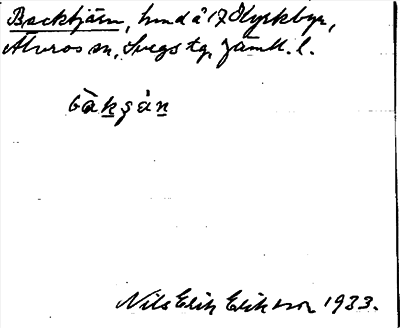 Backtjärn, hmd å 17 Flyrkbyn,
Älvros sn, Svegs tg, Jämtl. l.
bàkʒàn
Nils Erik Eriksson 1933.